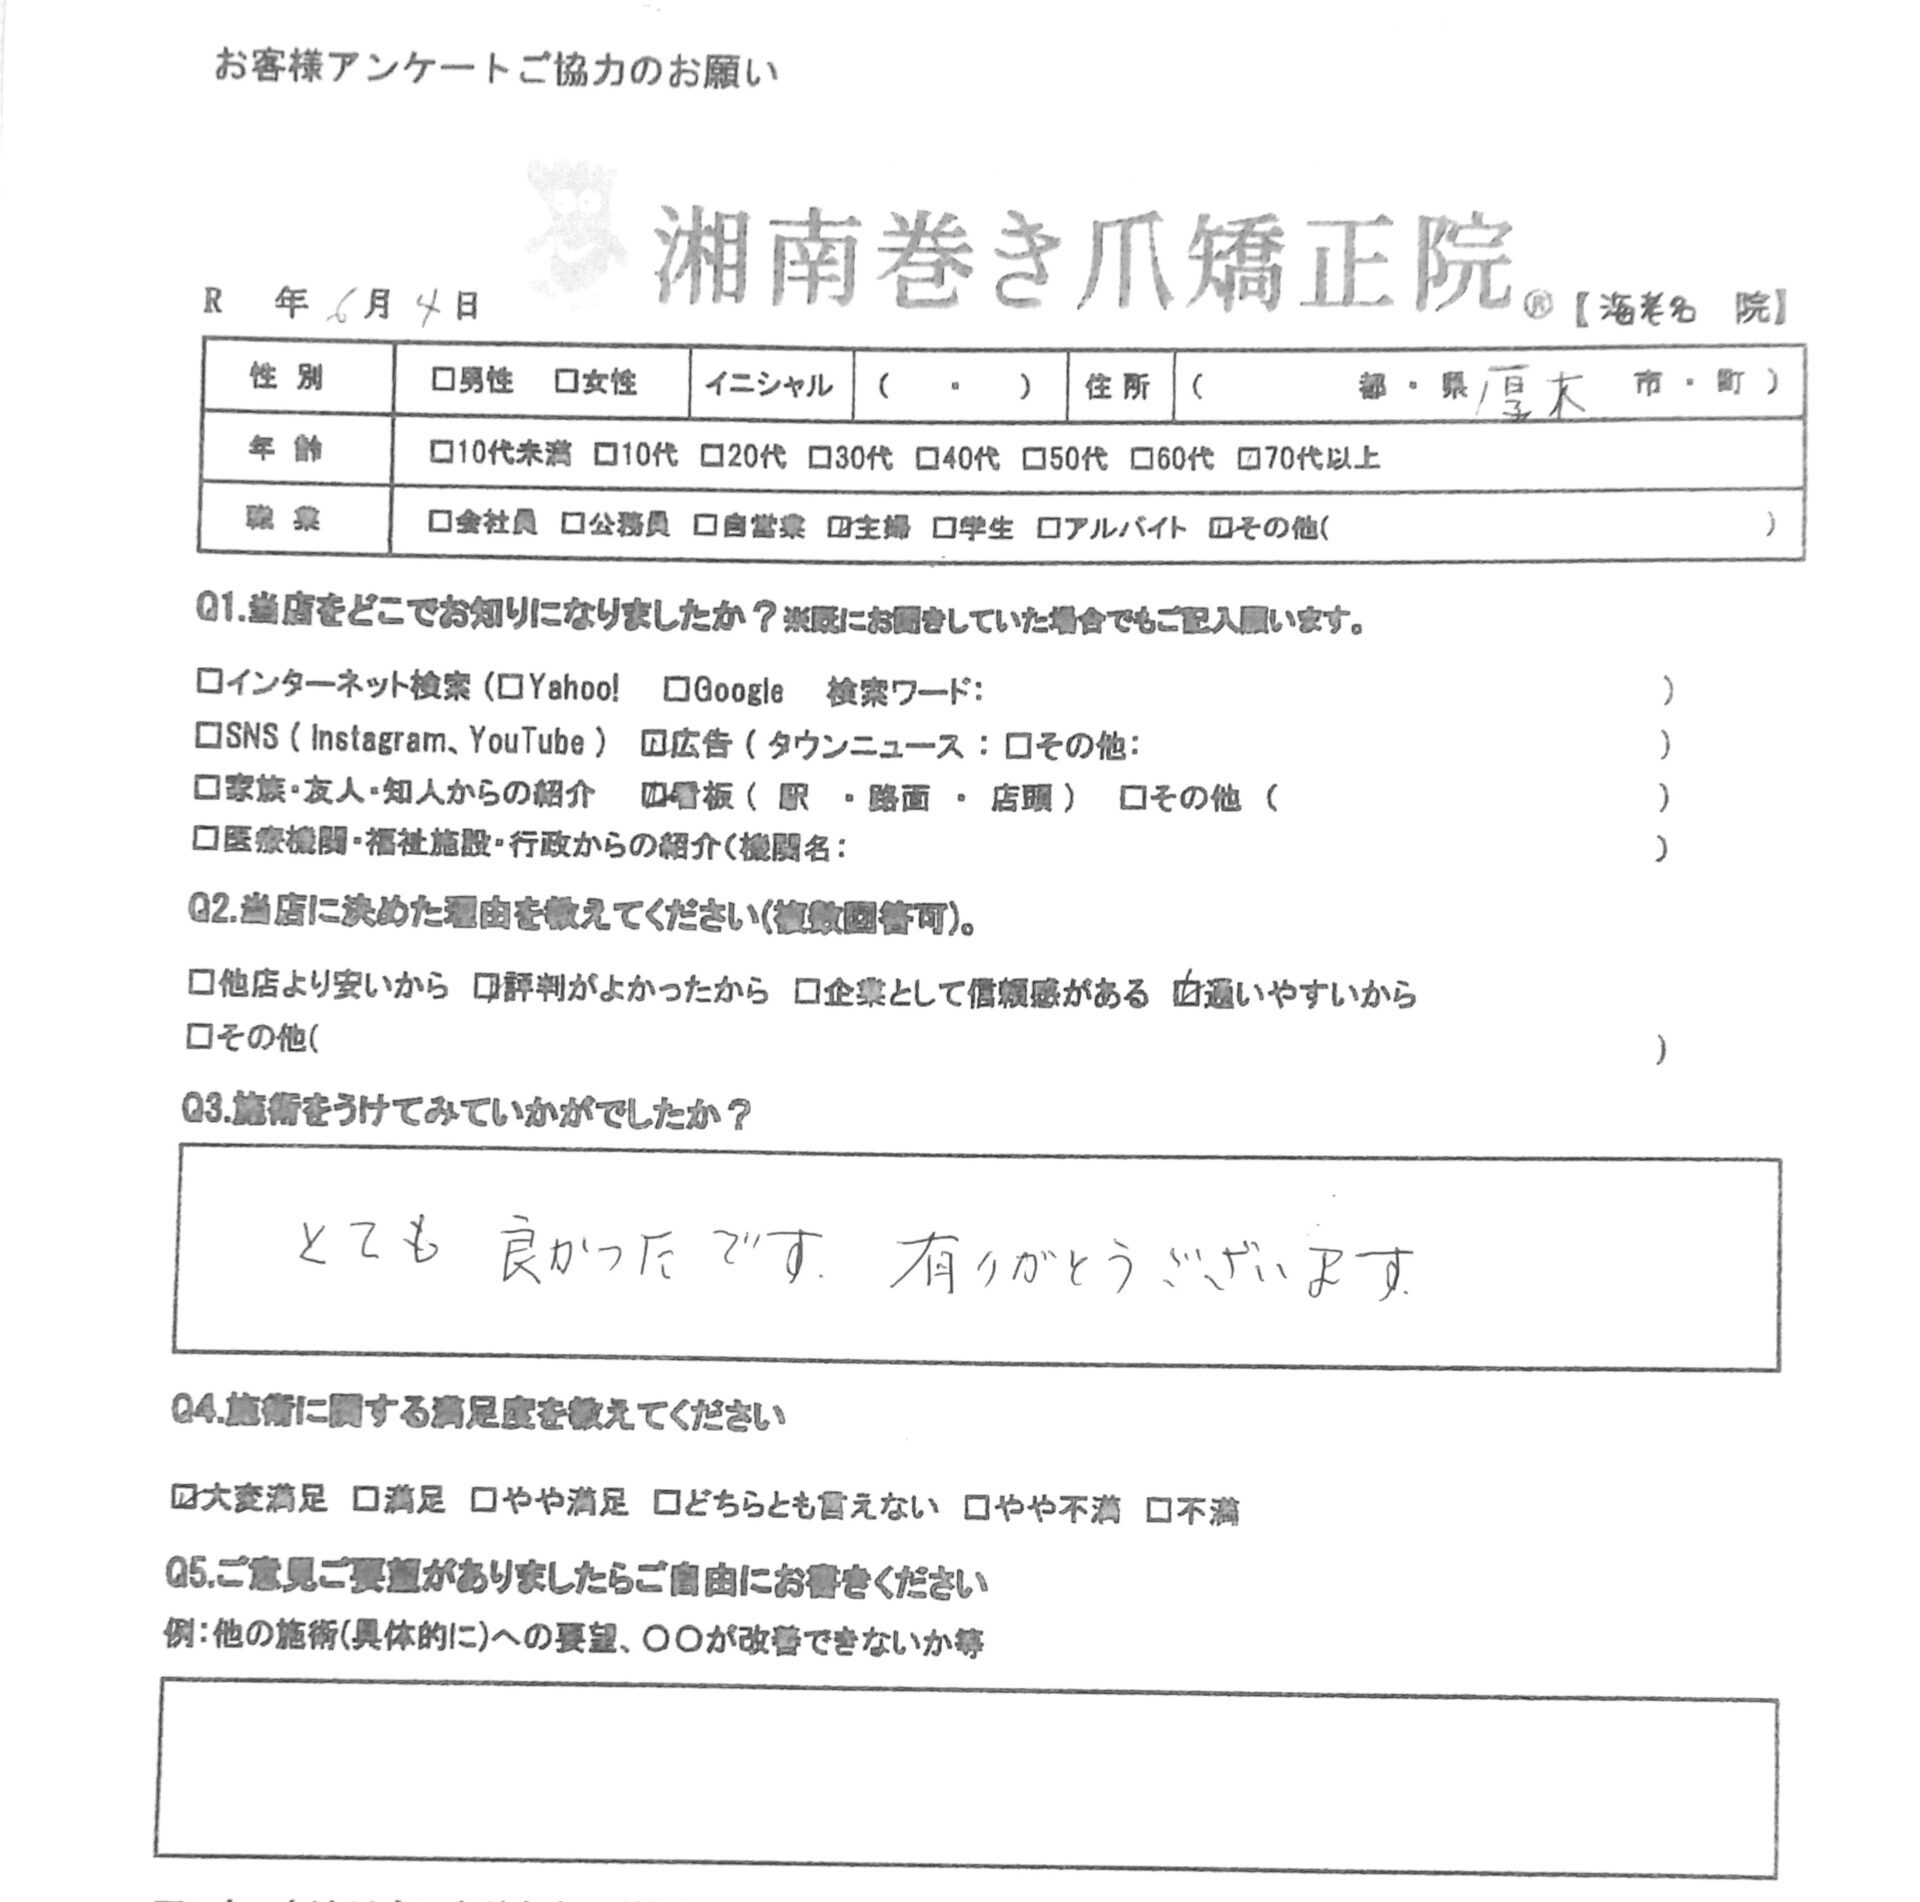 お客様アンケートご協力のお願い
湘南巻き爪矯正院® 【海老名 院】
R 年 6月 4日
性別 □男性 □女性 イニシャル ( ・ ) 住所 ( 都・県 厚木 市・町 )
年齢 □10代未満 □10代 □20代 □30代 □40代 □50代 □60代 ☑70代以上
職業 □会社員 □公務員 □自営業 ☑主婦 □学生 □アルバイト ☑その他( )
Q1.当店をどこでお知りになりましたか？※既にお聞きしていた場合でもご記入願います。
□インターネット検索 (□Yahoo! □Google 検索ワード: )
□SNS ( Instagram、YouTube ) ☑広告 ( タウンニュース : □その他: )
□家族・友人・知人からの紹介 ☑看板 ( 駅 ・ 路面 ・ 店頭 ) □その他 ( )
□医療機関・福祉施設・行政からの紹介(機関名: )
Q2.当店に決めた理由を教えてください(複数回答可)。
□他店より安いから ☑評判がよかったから □企業として信頼感がある ☑通いやすいから
□その他( )
Q3.施術をうけてみていかがでしたか？
とても 良かったです. 有りがとうございます.
Q4.施術に関する満足度を教えてください
☑大変満足 □満足 □やや満足 □どちらとも言えない □やや不満 □不満
Q5.ご意見ご要望がありましたらご自由にお書きください
例:他の施術(具体的に)への要望、〇〇が改善できないか等